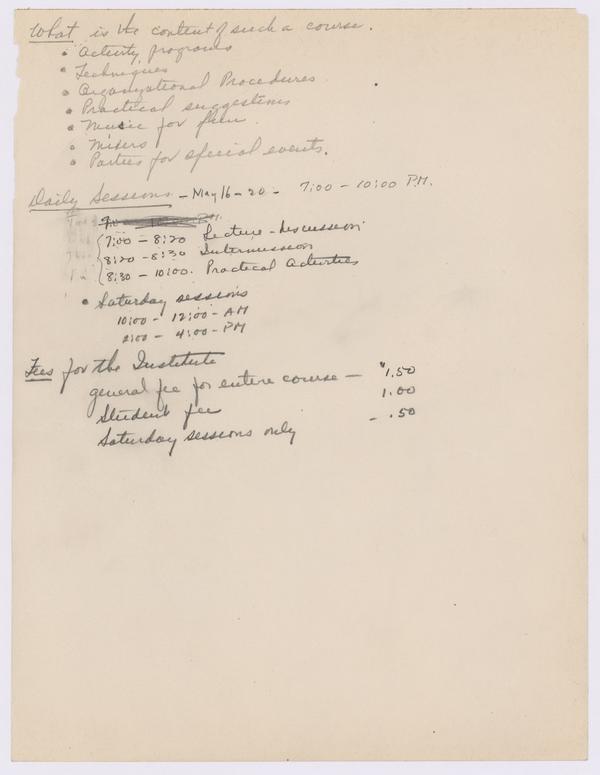 What is the content of such a course.
• Activity, programs
• Techniques
• Organizational Procedures
• Practical suggestions
• Music for fun.
• Mixers
• Parties for special events.
Daily Sessions - May 16 - 20 - 7:00 - 10:00 P.M.
7:00 - 8:20 Lecture - discussion
8:20 - 8:30 Intermission
8:30 - 10:00. Practical Activities
• Saturday sessions
10:00 - 12:00 - AM
2:00 - 4:00 - PM
Fees for the Institute
general fee for entire course — 1.50
Student fee 1.00
Saturday sessions only - .50